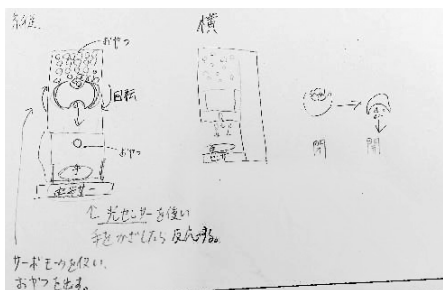 縦
横
おやつ
回転
おやつ
手
センサー
閉
開
↑光センサーを使い
手をかざしたら反応する。
サーボモータを使い、
おやつを出す。